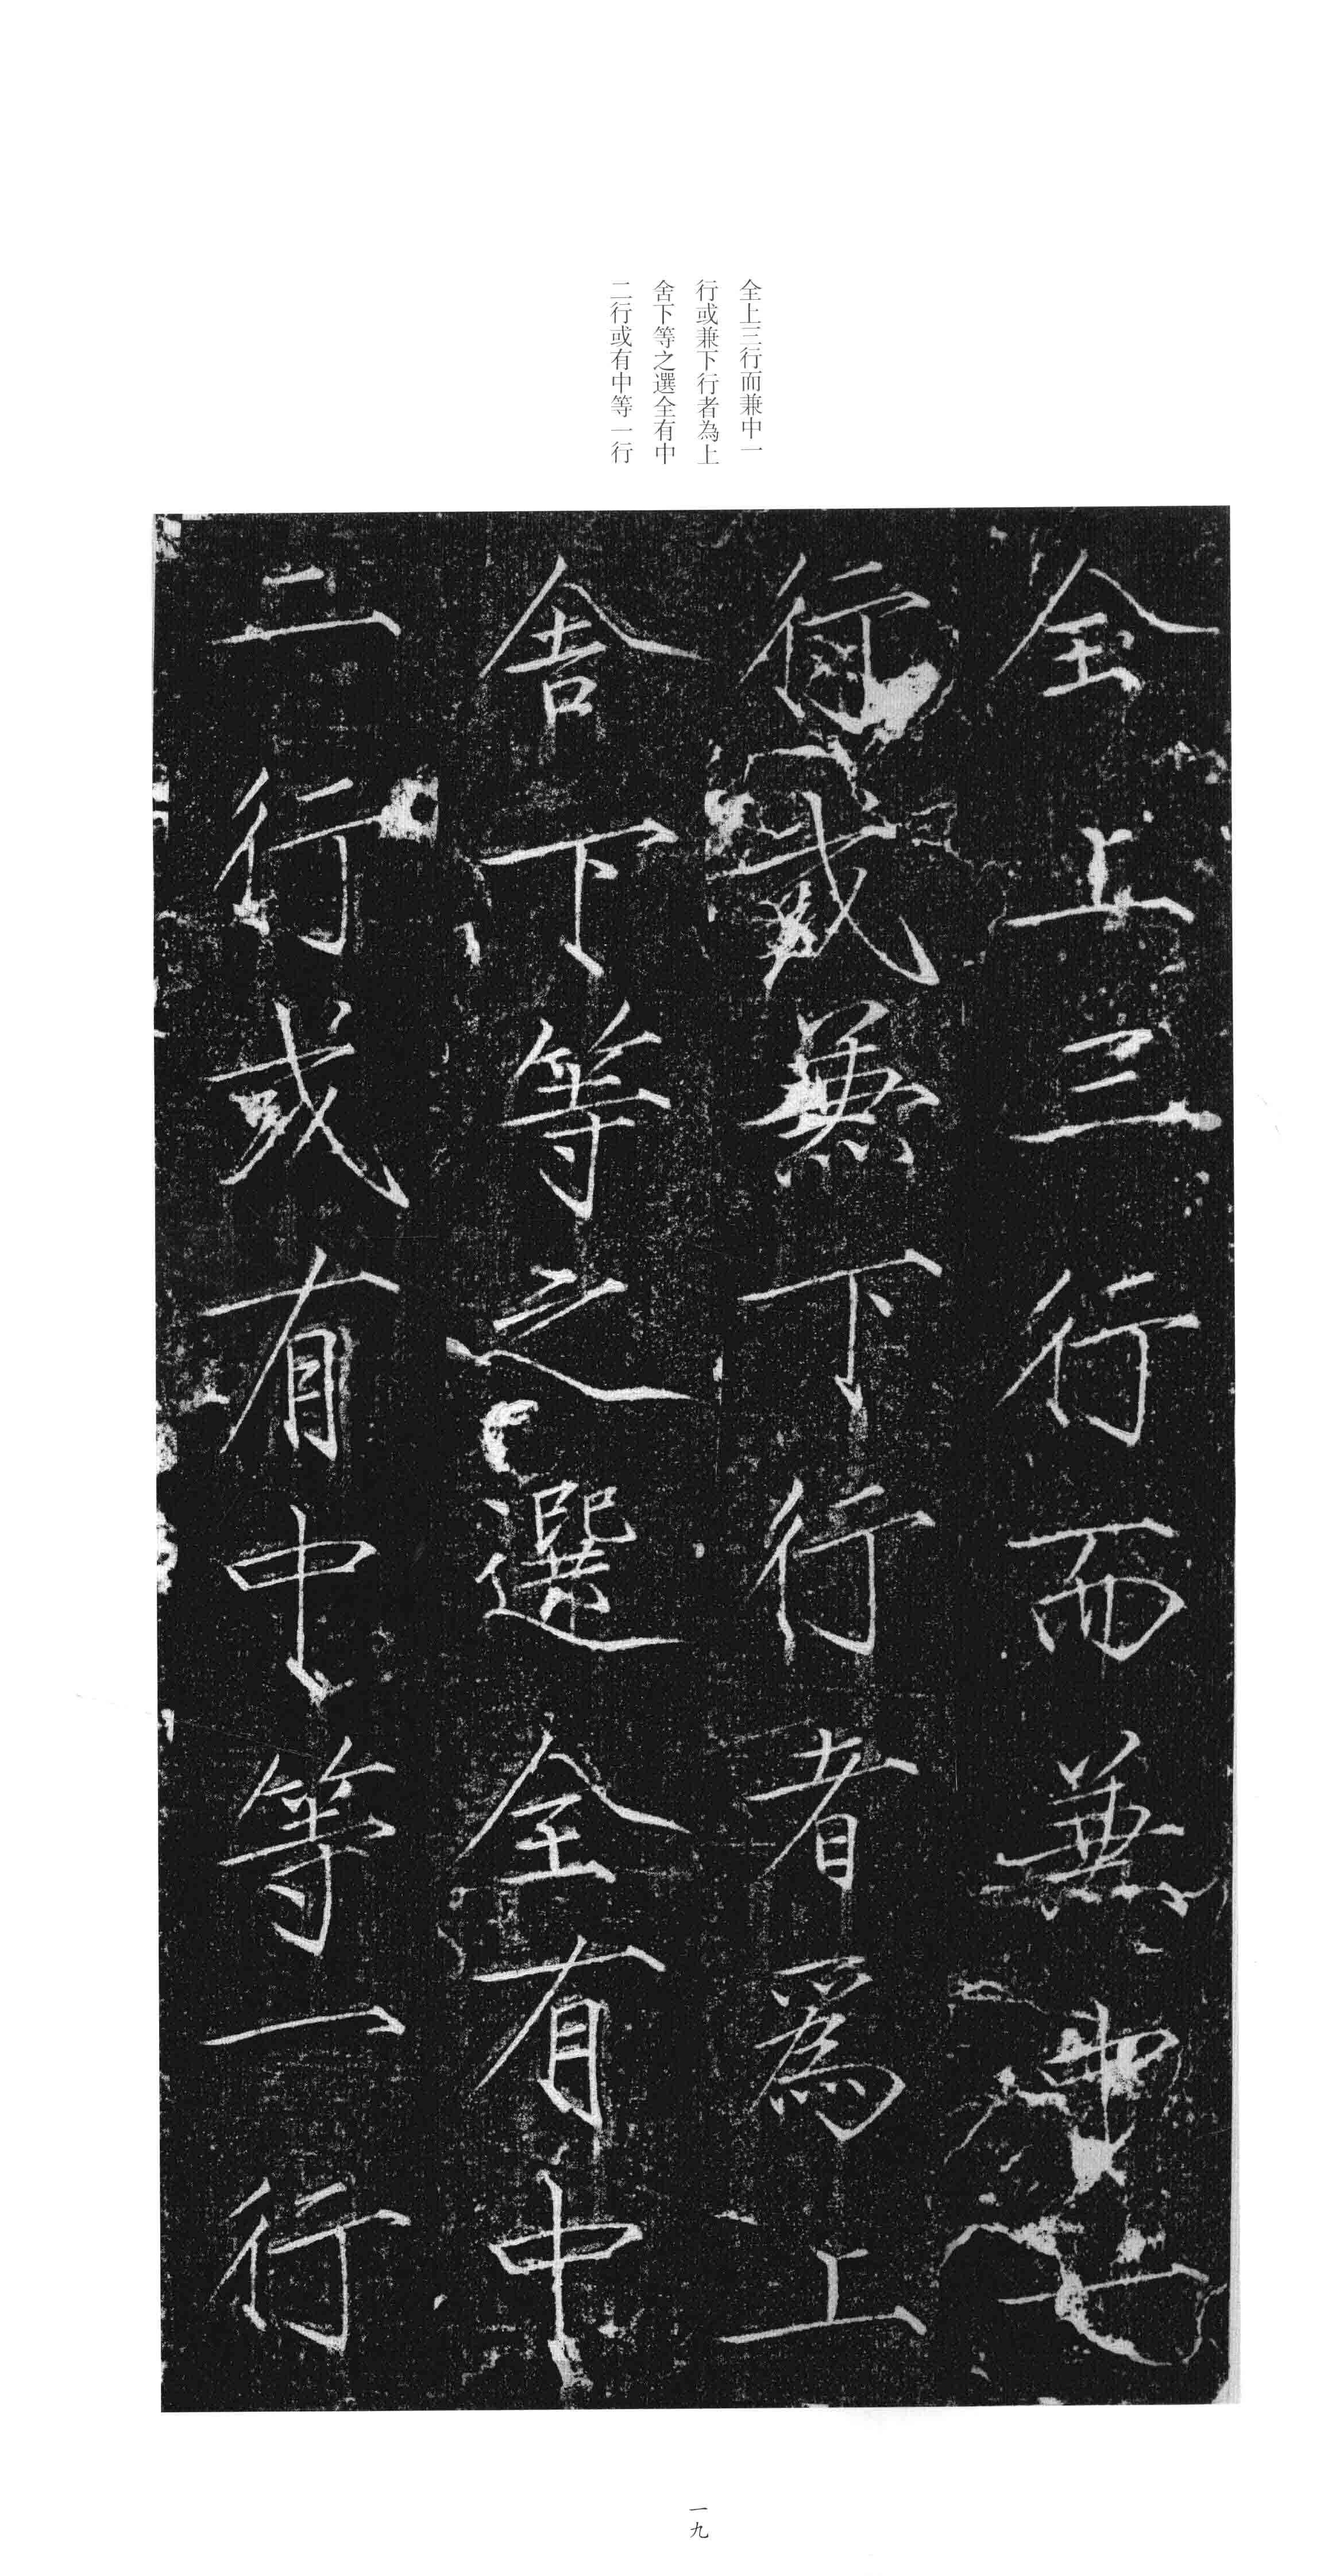 全上三行而兼中一
行或兼下行者為上
舍下等之選全有中
二行或有中等一行
全上三行而兼中一
行或兼下行者爲上
舍下等之選全有中
二行或有中等一行
一九